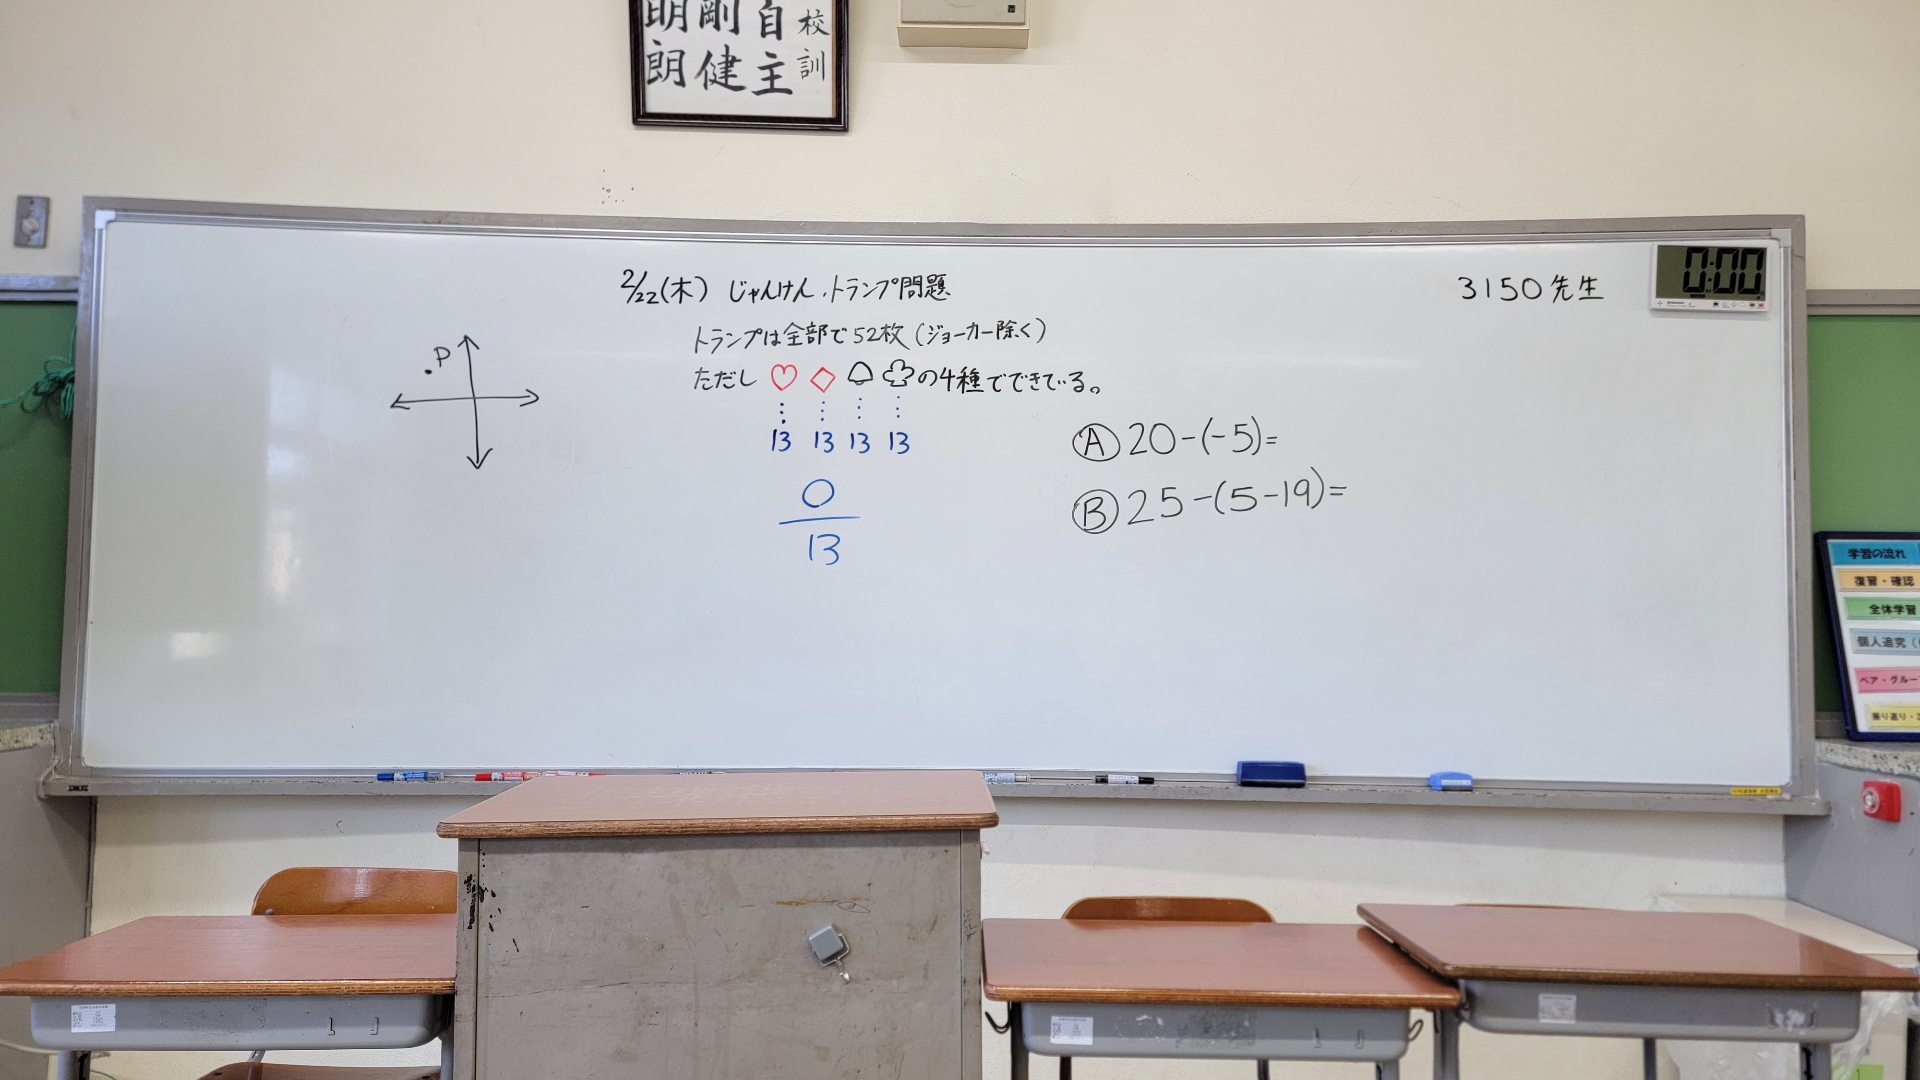 校訓
自主
剛健
明朗
2/22(木) じゃんけん、トランプ問題
3150先生
0:00
トランプは全部で52枚(ジョーカー除く)
ただし ♡ ◇ ♤ ♧ の4種でできている。
13 13 13 13
0
13
P
Ⓐ 20-(-5)=
Ⓑ 25-(5-19)=
学習の流れ
復習・確認
全体学習
個人追究(
ペア・グルー
振り返り・